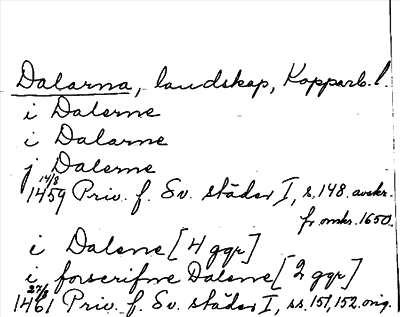 Dalarna, landskap, Kopparb. l.
i Dalerne
i Dalarne
j Dalerne
14/8 1459 Priv. f. Sv. städer I, s. 148. avskr. fr. omkr. 1650.
i Dalene [4 ggr]
i forscrifne Dalene [2 ggr]
27/8 1461 Priv. f. Sv. städer I, ss. 151, 152. orig.